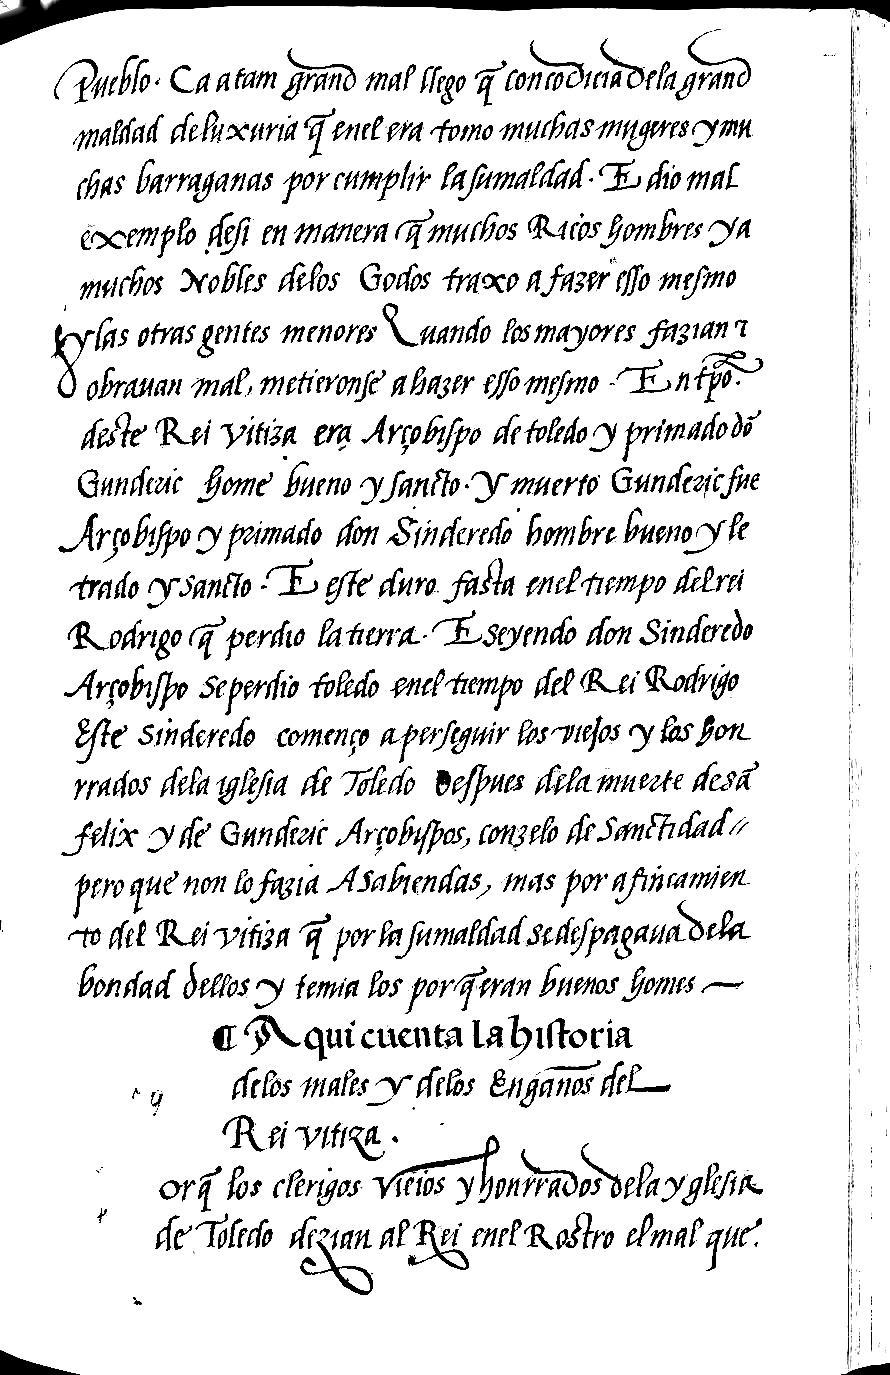 Pueblo. Ca a tam grand mal llego q̃ con codicia dela grand
maldad de luxuria q̃ enel era tomo muchas mugeres y mu
chas barraganas por cumplir la su maldad. E dio mal
exemplo desi en manera q̃ muchos Ricos homb̃res y a
muchos Nobles delos Godos traxo a fazer esso mesmo
y las otras gentes menores Quando los mayores fazian ⁊
obrauan mal, metieronse a hazer esso mesmo. En tp̃o.
deste Rei vitiza era Arçobispo de toledo y primado dõ
Gunderic home bueno y sancto. y muerto Gunderic fue
Arçobispo y primado don Sinderedo hombre bueno y le
trado y sancto. E este duro fasta enel tiempo del rei
Rodrigo q̃ perdio la tierra. E seyendo don Sinderedo
Arçobispo se perdio toledo enel tiempo del Rei Rodrigo
Este Sinderedo començo a perseguir los viejos y los hon
rrados dela iglesia de Toledo Despues dela muerte de sã
felix y de Gunderic Arçobispos, con zelo de Sanctidad //
pero que non lo fazia A Sabiendas, mas por afincamien
to del Rei vitiza q̃ por la su maldad se despagaua dela
bondad dellos y temia los porq̃ eran buenos homes —
¶ Aqui cuenta la historia
delos males y delos Engaños del
Rei vitiza.
orq̃ los clerigos vieios y honrrados dela yglesia
de Toledo dezian al Rei enel Rostro el mal que.